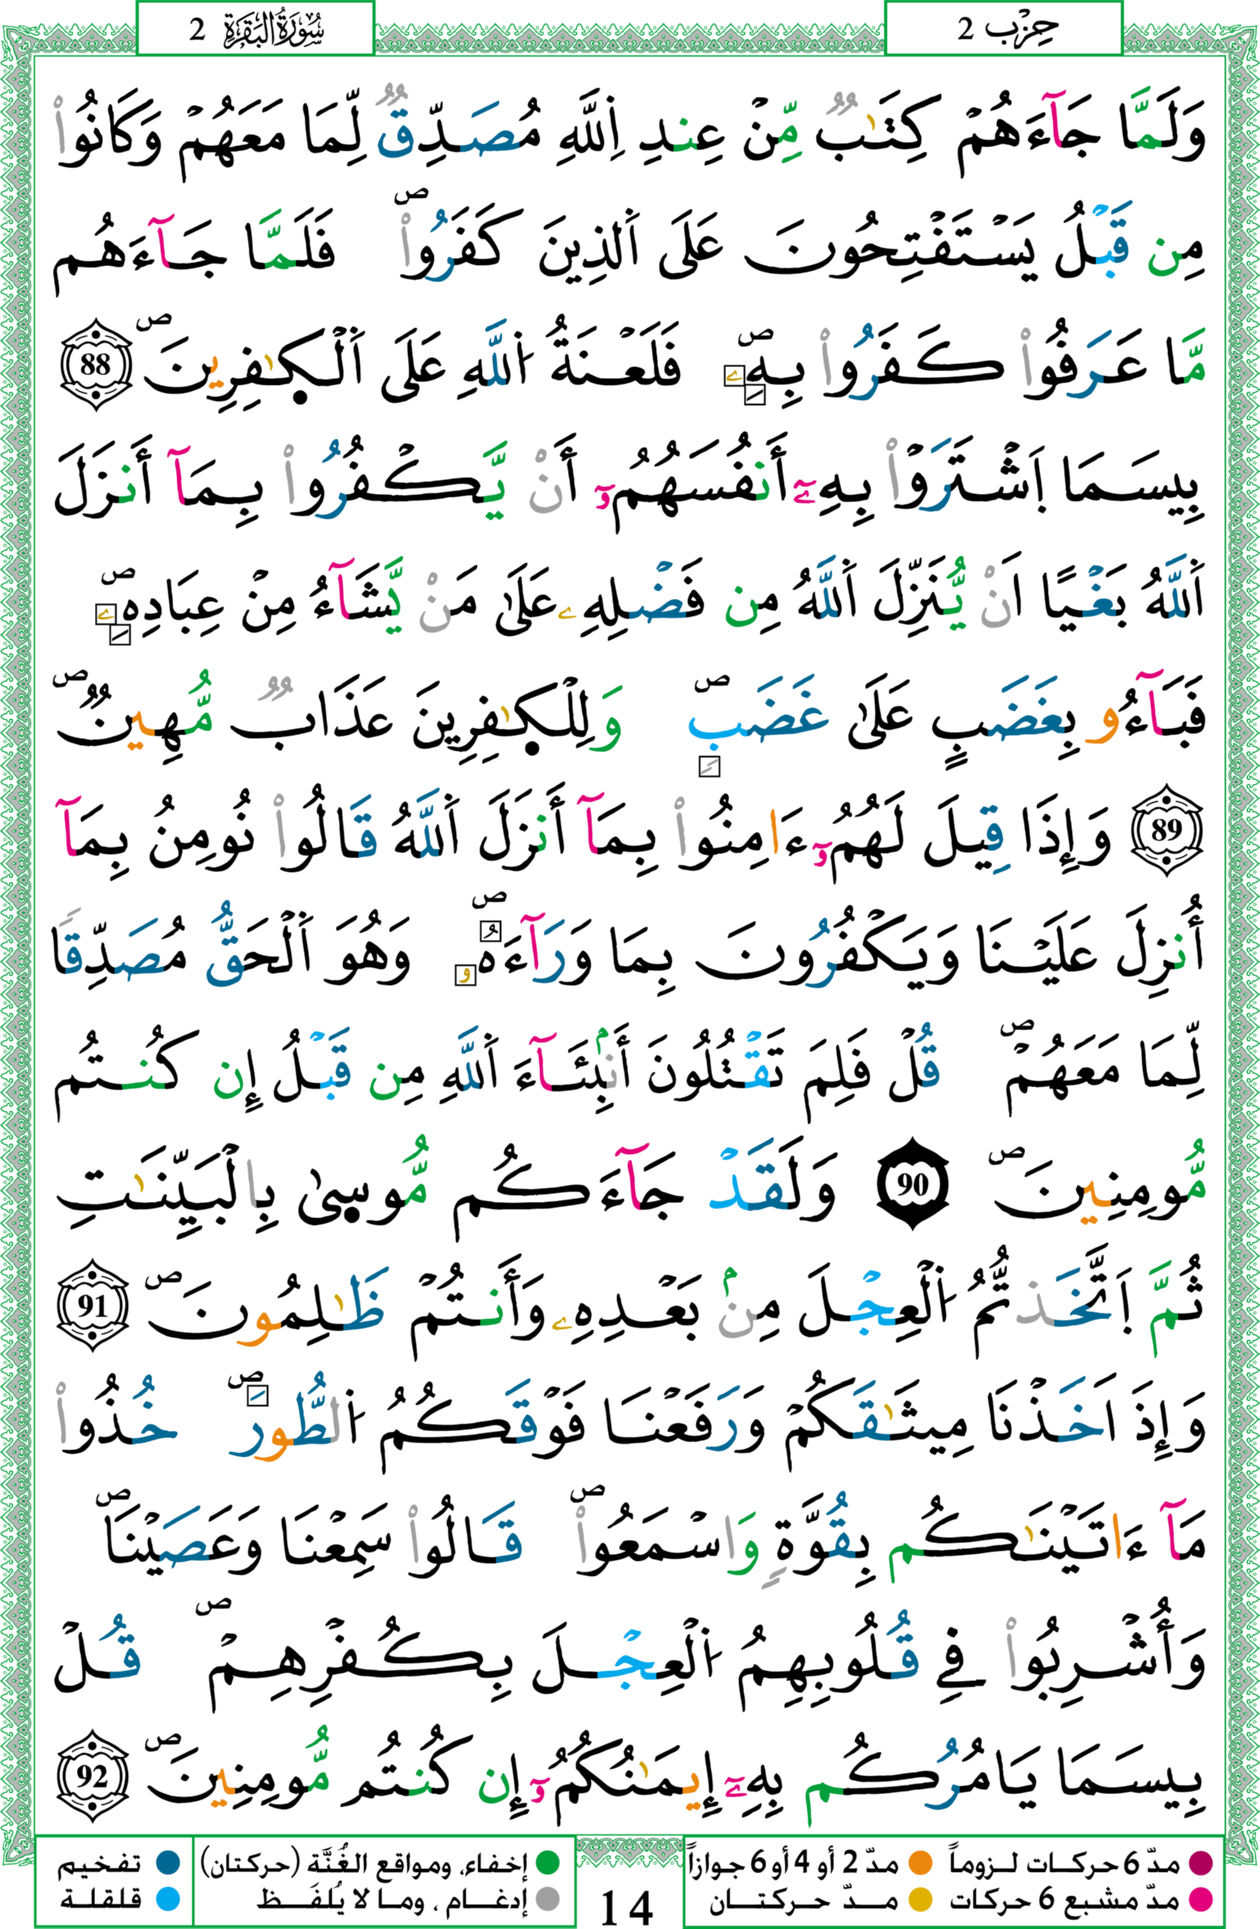 حِزْب 2
سُورَةُ البَقَرَةِ 2
وَلَمَّا جَآءَهُمْ كِتَٰبٌ مِّنْ عِندِ اِ۬للَّهِ مُصَدِّقٌ لِّمَا مَعَهُمْ وَكَانُواْ
مِن قَبْلُ يَسْتَفْتِحُونَ عَلَى اَ۬لذِينَ كَفَرُواْۖ فَلَمَّا جَآءَهُم
مَّا عَرَفُواْ كَفَرُواْ بِهِۦۖ فَلَعْنَةُ اُ۬للَّهِ عَلَى اَ۬لْكٰ۪فِرِينَۖ 88
بِيسَمَا اَ۪شْتَرَوْاْ بِهِۦٓ أَنفُسَهُمُۥٓ أَنْ يَّكْفُرُواْ بِمَآ أَنزَلَ
اَ۬للَّهُ بَغْياً اَنْ يُّنَزِّلَ اَ۬للَّهُ مِن فَضْلِهِۦ عَلَىٰ مَنْ يَّشَآءُ مِنْ عِبَادِهِۦۖ
فَبَآءُو بِغَضَبٍ عَلَىٰ غَضَبٍۖ وَلِلْكٰ۪فِرِينَ عَذَابٌ مُّهِينٌۖ
89 وَإِذَا قِيلَ لَهُمُۥٓ ءَامِنُواْ بِمَآ أَنزَلَ اَ۬للَّهُ قَالُواْ نُومِنُ بِمَآ
أُنزِلَ عَلَيْنَا وَيَكْفُرُونَ بِمَا وَرَآءَهُۥۖ وَهُوَ اَ۬لْحَقُّ مُصَدِّقاً
لِّمَا مَعَهُمْۖ قُلْ فَلِمَ تَقْتُلُونَ أَنۢبِئَآءَ اَ۬للَّهِ مِن قَبْلُ إِن كُنتُم
مُّومِنِينَۖ 90 وَلَقَدْ جَآءَكُم مُّوسىٰ بِالْبَيِّنَٰتِ
ثُمَّ اَ۪تَّخَذتُّمُ اُ۬لْعِجْلَ مِنۢ بَعْدِهِۦ وَأَنتُمْ ظَٰلِمُونَۖ 91
وَإِذَ اَخَذْنَا مِيثَٰقَكُمْ وَرَفَعْنَا فَوْقَكُمُ اُ۬لطُّورَۖ خُذُواْ
مَآ ءَاتَيْنَٰكُم بِقُوَّةٍ وَاسْمَعُواْۖ قَالُواْ سَمِعْنَا وَعَصَيْنَاۖ
وَأُشْرِبُواْ فِي قُلُوبِهِمُ اُ۬لْعِجْلَ بِكُفْرِهِمْۖ قُلْ
بِيسَمَا يَامُرُكُم بِهِۦٓ إِيمَٰنُكُمُۥٓ إِن كُنتُم مُّومِنِينَۖ 92
مدّ 6 حركات لـزوماً مدّ 2 أو 4 أو 6 جوازاً
مدّ مشبع 6 حركات مـدّ حـركتـان
14
إخفاء، ومواقع الغُنَّة (حركتان) تفخيم
إدغـام ، ومـا لا يُلفَـظ قلقلـة